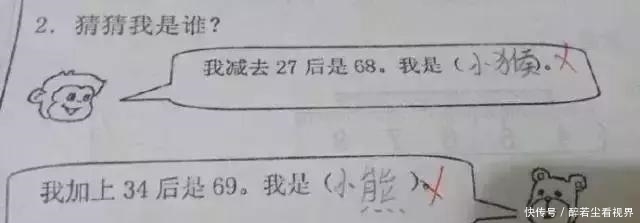 2. 猜猜我是谁？
我减去 27 后是 68。我是（小猴）。
我加上 34 后是 69。我是（小熊）。
快传号 / 醉若尘看视界